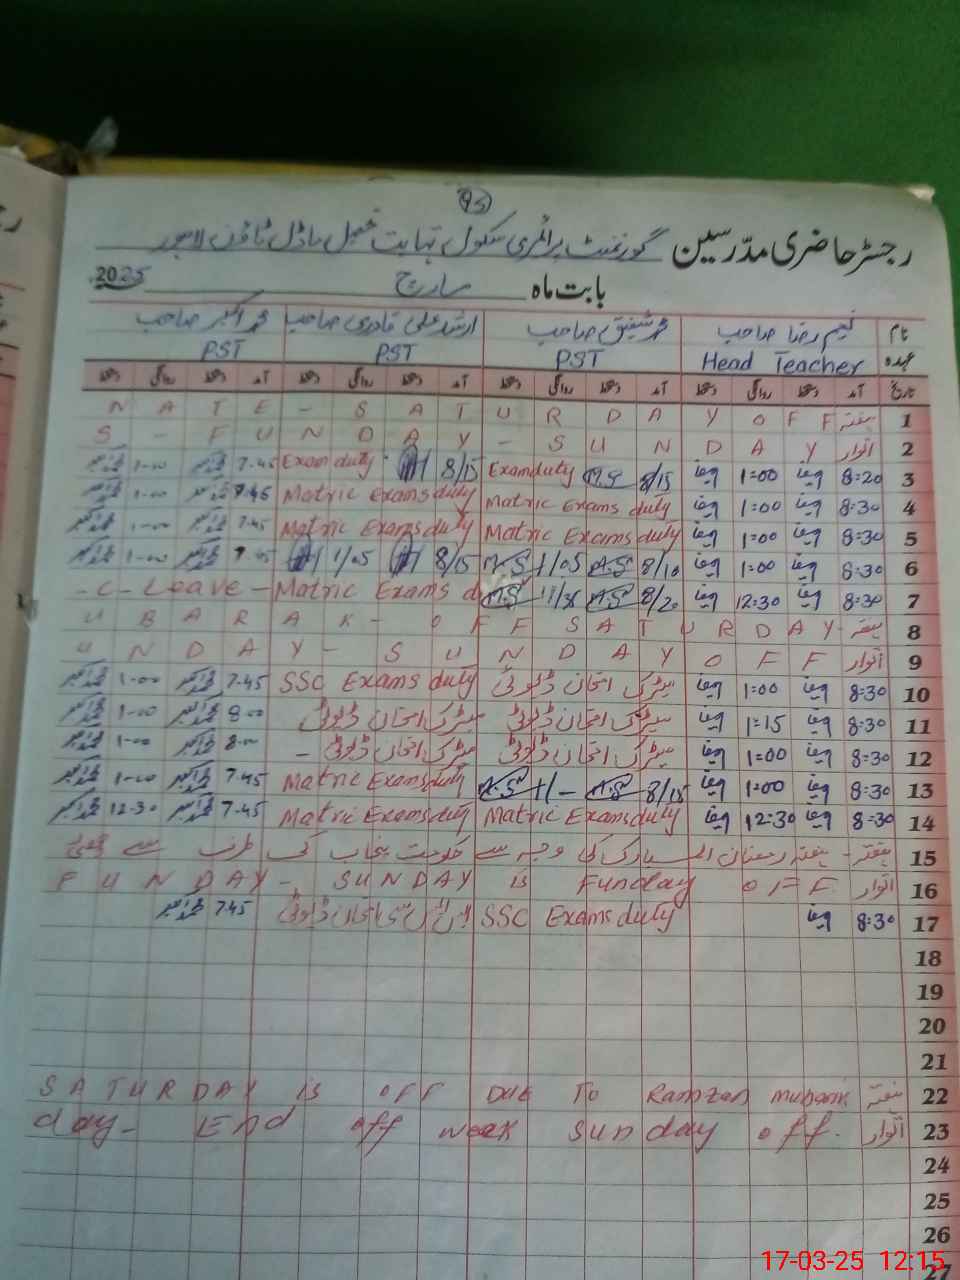 95
رجسٹر حاضری مدرّسین گورنمنٹ پرائمری سکول ماڈل ٹاؤن لاہور
بابت ماہ مارچ 2025
نام نعیم رضا صاحب محمد شفیق صاحب ارشد علی قادری صاحب محمد اکبر صاحب
عہدہ Head Teacher PST PST PST
تاریخ آمد دستخط روانگی دستخط آمد دستخط روانگی دستخط آمد دستخط روانگی دستخط آمد دستخط روانگی دستخط
1 ہفتہ N A T E - S A T U R D A Y O F F
2 اتوار S - F U N D A Y - S U N D A Y
3 8:20 1:00 8/15 M.S Examduty 8/15 Exam duty 7.45 1-00
4 8:30 1:00 Matric Exams duty Matric Exams duty 7.45 1-00
5 8:30 1:00 Matric Exams duty Matric Exams duty 7.45 1-00
6 8:30 1:00 8/10 M.S 1/05 M.S 8/15 1/05 7.45 1-00
7 8:30 12:30 8/20 M.S 11/30 M.S Matric Exams - C - Leave -
8 ہفتہ U B A R A K - O F F S A T U R D A Y
9 اتوار U N D A Y - S U N D A Y O F F
10 8:30 1:00 میٹرک امتحان ڈیوٹی SSC Exams duty 7.45 1-00
11 8:30 1:15 میٹرک امتحان ڈیوٹی میٹرک امتحان ڈیوٹی 8-00 1-00
12 8:30 1:00 میٹرک امتحان ڈیوٹی میٹرک امتحان ڈیوٹی - 8-00 1-00
13 8:30 1:00 8/15 M.S 1/- M.S Matric Exams duty 7.45 1-00
14 8:30 12:30 Matric Exams duty Matric Exams duty 7.45 12-30
15 ہفتہ - ہفتہ رمضان المبارک کی وجہ سے حکومت پنجاب کی طرف سے چھٹی
16 اتوار F U N D A Y - SUNDAY is Funday O F F
17 8:30 SSC Exams duty ایس ایس سی امتحان ڈیوٹی 7.45
18
19
20
21
22 ہفتہ S A T U R D A Y is OFF DUE To Ramzan mubarik
23 اتوار day - End off week Sunday off.
24
25
26
27
17-03-25 12:15